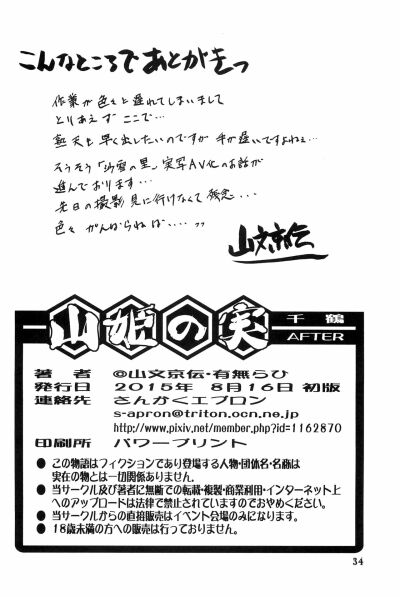 こんなところであとがきっ
作業が色々と遅れてしまいまして
とりあえず ここで…
熟天も早く出したいのですが 手が遅いですよねぇ…
そろそろ「沙雪の里」実写AV化のお話が
進んでおります…
先日の撮影 見に行けなくて残念...
色々 がんばらねば....
山文京伝
山姫の実
千鶴
AFTER
著者 @山文京伝・有無らひ
発行日 2015年 8月16日 初版
連絡先 さんかくエプロン
s-apron@triton.ocn.ne.jp
http://www.pixiv.net/member.php?id=1162870
印刷所 パワープリント
● この物語はフィクションであり登場する人物・団体名・名称は
実在の物とは一切関係ありません.
● 当サークル及び著者に無断での転載・複製・商業利用・インターネット上
へのアップロードは法律で禁止されていますのでおやめください。
● 当サークルからの直接販売はイベント会場のみになります。
● 18歳未満の方への販売は行っておりません。
34